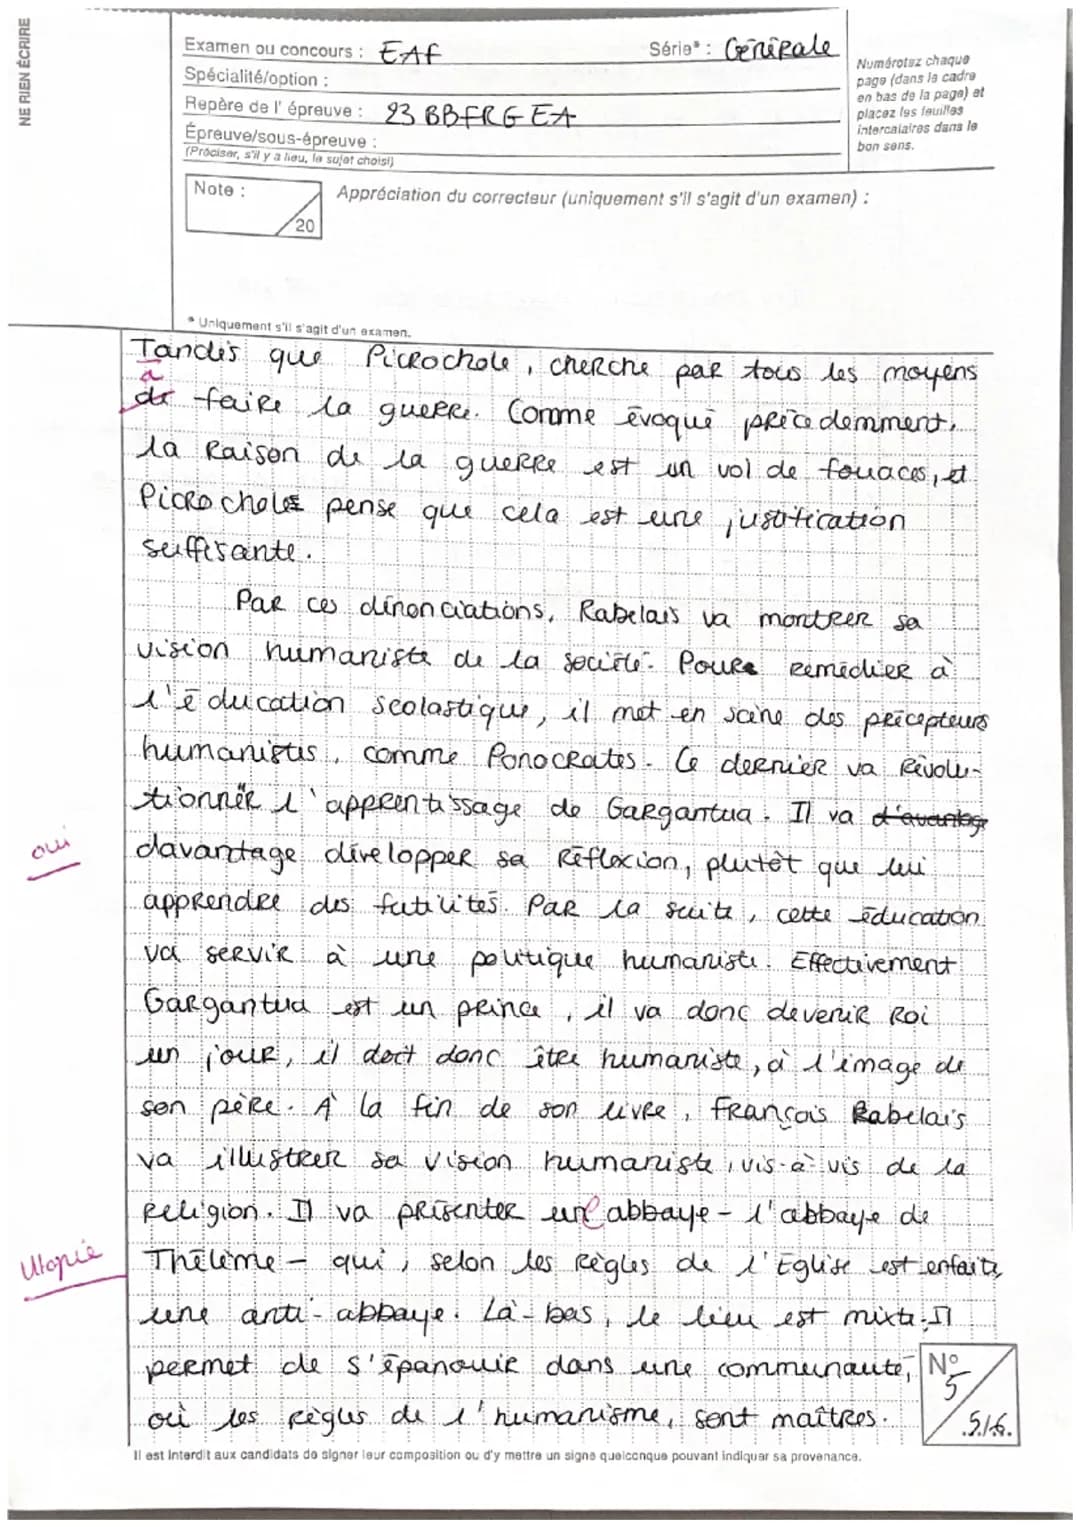 NE RIEN ÉCRIRE
Examen ou concours : EAF Série* : Générale
Spécialité/option :
Repère de l' épreuve : 23 BBFRG EA
Épreuve/sous-épreuve :
(Préciser, s'il y a lieu, le sujet choisi)
Numérotez chaque
page (dans le cadre
en bas de la page) et
placez les feuilles
intercalaires dans le
bon sens.
Note :
20
Appréciation du correcteur (uniquement s'il s'agit d'un examen) :
* Uniquement s'il s'agit d'un examen.
Tandis que Picrochole, cherche par tous les moyens
à
de faire la guerre. Comme évoqué précedemment,
la raison de la guerre est un vol de fouaces, et
Picrochole pense que cela est une justification
suffisante.
Par ces dénonciations, Rabelais va montrer sa
vision humaniste de la société. Pour remédier à
l'éducation scolastique, il met en scène des précepteurs
humanistes, comme Ponocrates. Ce dernier va révolu-
tionner l'apprentissage de Gargantua. Il va d'avantage
oui
davantage développer sa réflexion, plutôt que lui
apprendre des futilités. Par la suite, cette éducation
va servir à une politique humaniste. Effectivement
Gargantua est un prince, il va donc devenir roi
un jour, il doit donc être humaniste, à l'image de
son père. A la fin de son livre, François Rabelais
va illustrer sa vision humaniste, vis-à-vis de la
religion. Il va présenter une abbaye - l'abbaye de
Utopie
Thélème - qui, selon les règles de l'Eglise est enfaite,
une anti-abbaye. Là-bas, le lieu est mixte. Il
permet de s'épanouir dans une communauté,
où les règles de l'humanisme, sont maîtres.
N°
5
5/6.
Il est interdit aux candidats de signer leur composition ou d'y mettre un signe quelconque pouvant indiquer sa provenance.